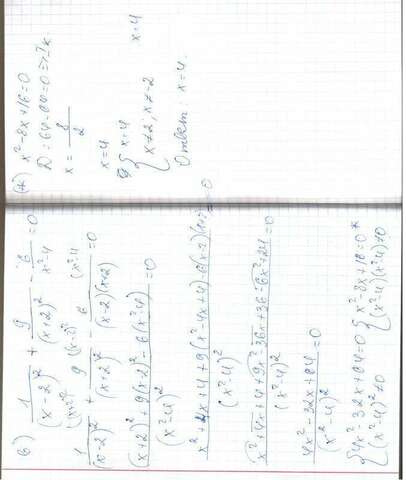 б) 1/(x-2)² + 9/(x+2)² - 6/(x²-4) = 0
1/(x-2)² + 9/(x+2)² - 6/(x-2)(x+2) = 0
((x+2)² + 9(x-2)² - 6(x²-4))/(x²-4)² = 0
(x²+4x+4+9(x²-4x+4)-6(x-2)(x+2))/(x²-4)² = 0
(x²+4x+4+9x²-36x+36-6x²+24)/(x²-4)² = 0
(4x²-32x+64)/(x²-4)² = 0
{4x²-32x+64=0 {x²-8x+16=0 *
(x²-4)²≠0 (x²-4)(x²-4)≠0
(*) x²-8x+16=0
D = 64-64=0 => 1к.
x = 8/2
x=4
{x=4
x≠2; x≠-2 x=4
Ответ: x=4.